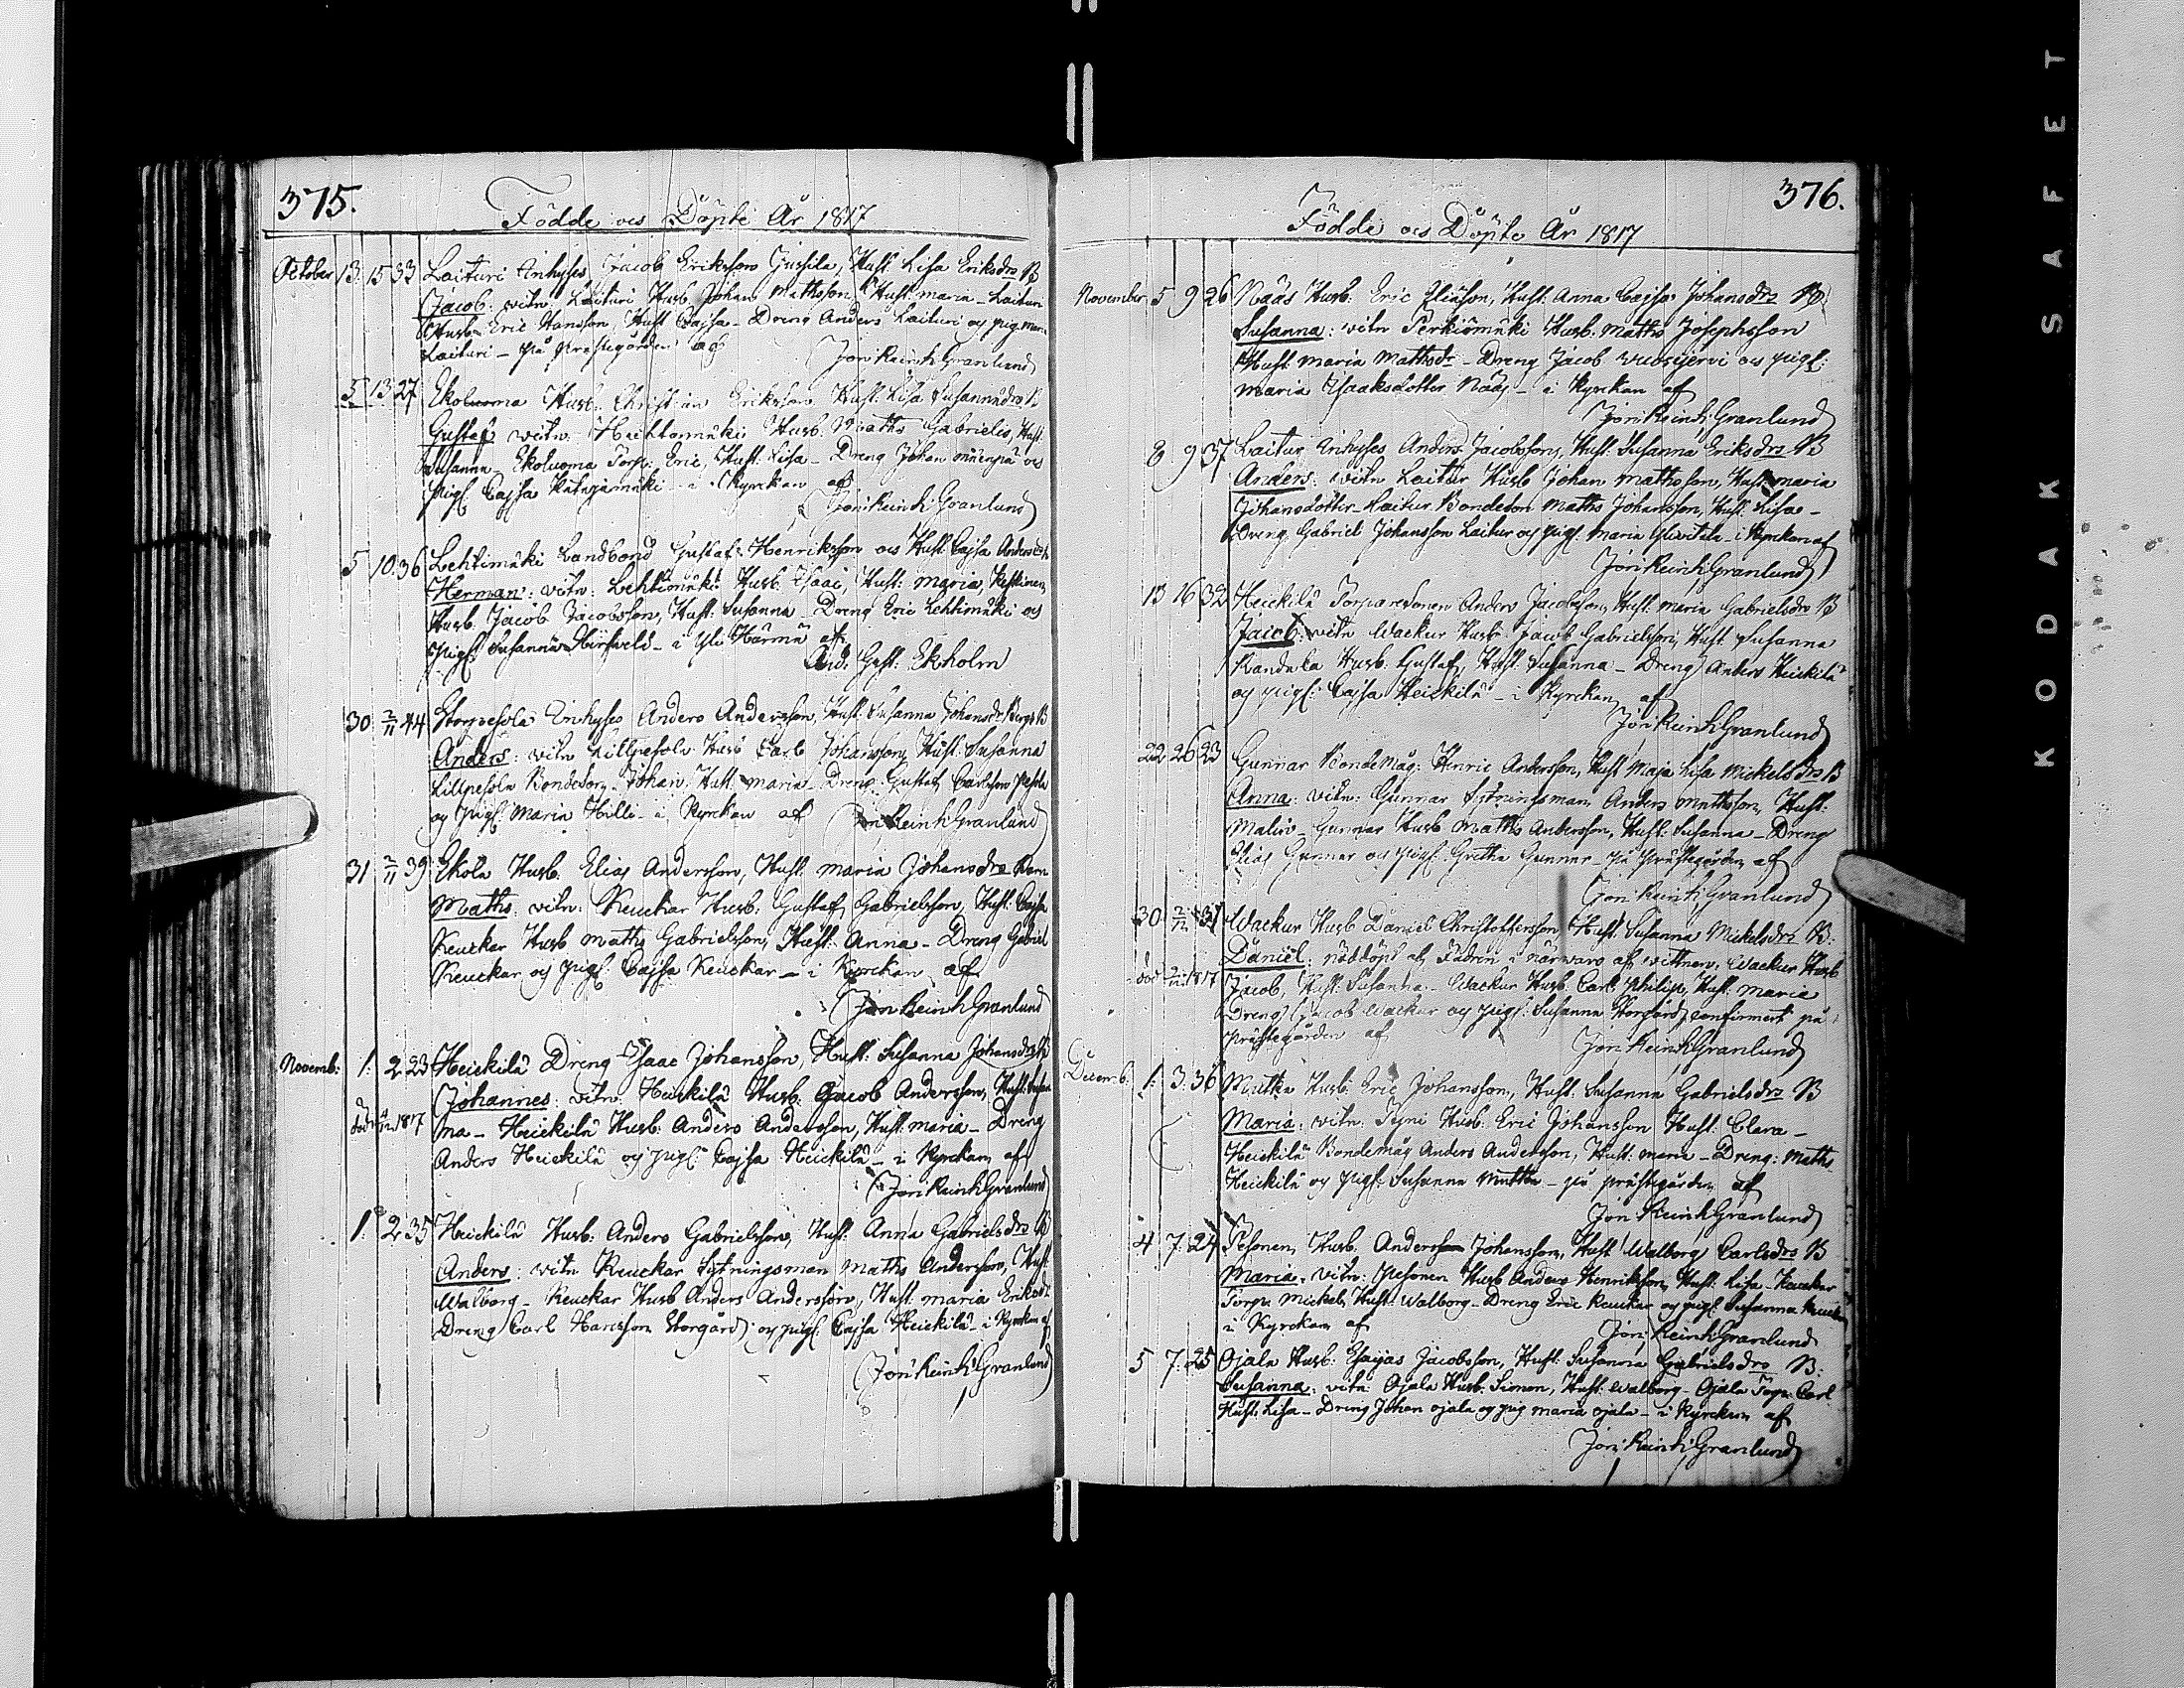 375.
Födde och Döpte År 1817
October 13. 15 33 Laituri Inhyses Jacob Eriksson Hust. Lisa Eriksdr B
Jacob: vitn. Laituri Husb. Johan Mathsson Hust. Maria - Laituri
Husb. Eric Hansson, Hust Cajsa - Dreng Anders Laituri og pig. Maria
Laituri - på Prestegården af Jon: Reinh: Granlund
5 13 27 Ekoluoma Husb. Christian Eriksson Hust. Lisa
Gustaf vitn. Husb. Maths Gabrielss, Hust.
Susanna - Ekoluoma Torp. Eric, Hust. Lisa - Dreng Johan och
Pigf. Cajsa - i Kyrckan af
Jon: Reinh: Granlund
5 10. 36 Lehtimäki Landbond Gustaf Henriksson och Hust. Cajsa Andersdr
Herman: vitn: Lehtimäki Husb. Isaac, Hust: Maria, Keskinen
Husb. Jacob Jacobsson, Hust: Susanna - Dreng Eric Lehtimäki och
pigf. Susanna - i Yli Härmä af
And. Gust: Ekholm
30 2/11 44 Storpesola Inhyses Anders Andersson, Hust. Susanna Johansdr B
Anders: vitn Lillpesola Husb Carl Johansson, Hust. Susanna
Lillpesola Bondeson Johan, Hust. Maria - Dreng Gustaf Carlsson
og Pigf. Maria Hilli - i Kyrckan af Jon: Reinh: Granlund
31 2/11 39 Ekola Husb. Elias Andersson, Hust. Maria Johansdr Barn
Maths: vitn: Keuckar Husb: Gustaf Gabrielsson, Hust. Cajsa
Keuckar Husb Maths Gabrielsson, Hust. Anna - Dreng Gabriel
Keuckar og pigf. Cajsa Keuckar - i Kyrckan af
Jon Reinh Granlund
Novemb: 1. 2 23 Heickilä Dreng Isaac Johansson, Hust: Susanna Johansdr B
Johannes: vitn. Heickilä Husb. Jacob Andersson, Hust: Susan
död 1817 na - Heickilä Husb. Anders Andersson, Hust. Maria - Dreng
Anders Heickilä og pigf. Cajsa Heickilä - i Kyrckan af
Jon: Reinh: Granlund
1. 2 35 Heickilä Husb: Anders Gabrielsson, Hust. Anna Gabrielsdr B
Anders: vitn Keuckar Sytningsman Maths Andersson, Hust.
Walborg - Keuckar Husb Anders Andersson, Hust. Maria Eriksdr
Dreng Carl Hansson Storgård og pigf. Cajsa Heickilä - i Kyrckan af
Jon: Reinh: Granlund
376.
Födde och Döpte År 1817
November 5 9 26 Nääs Husb: Eric Eliasson, Hust. Anna Cajsa Johansdr B.
Susanna: vitn Perkiömäki Husb. Maths Josephsson
Hust. Maria Mathsdr - Dreng Jacob och pigf.
Maria Isaaksdotter Nääs - i Kyrckan af
Jon: Reinh: Granlund
8 9 37 Laituri Inhyses Anders Jacobsson, Hust. Susanna Eriksdr B
Anders: vitn Laituri Husb Johan Mathsson, Hust Maria
Johansdotter - Laituri Bondeson Maths Johansson, Hust. Lisa -
Dreng Gabriel Johansson Laituri og pigf. Maria - i Kyrckan af
Jon: Reinh: Granlund
13 16 32 Heickilä Torparesonen Anders Jacobsson, Hust. Maria Gabrielsdr B
Jacob: vitn Wackur Husb. Jacob Gabrielsson, Hust. Susanna
Husb. Gustaf, Hust. Susanna - Dreng Anders Heickilä
og pigf: Cajsa Heickilä - i Kyrckan af
Jon: Reinh: Granlund
22 26 23 Gunnar Bondemåg: Henric Andersson, Hust Maja Lisa Mickelsdr B
Anna: vitn: Gunnar Sytningsman Anders Mathsson, Hust:
Malin - Gunnar Husb Maths Andersson, Hust. Susanna - Dreng
Elias Gunnar og Pigf. Gretha Gunnar - på Prästegården af
Jon: Reinh: Granlund
30 2/12 37 Wackur Husb Daniel Christophersson, Hust. Susanna Mickelsdr B.
Daniel: nöddöpt af Fadren i närwaro af vittnen: Wackur Husb
död 1817 Jacob, Hust: Susanna - Wackur Husb. Carl Philip, Hust. Maria
Dreng Jacob Wackur og pigf. Susanna Storgård, confirmert på
prästegården af Jon: Reinh: Granlund
Decemb. 1. 3. 36 Mutka Husb: Eric Johansson, Hust. Susanna Gabrielsdr B
Maria: vitn: Tyni Husb: Eric Johansson Hust. Clara -
Heickilä Bondemåg Anders Andersson, Hust: Maria - Dreng: Maths
Heickilä og pigf: Susanna Mutka - på prästegården af
Jon Reinh Granlund
4 7. 24 Pesonen Husb. Anders Johansson, Hust Walborg Carlsdr B
Maria: vitn: Pesonen Husb Anders Henriksson, Hust. Lisa - Keuckar
Torp: Mickel, Hust. Walborg - Dreng Eric Keuckar og pigf. Susanna Keuckar
i Kyrckan af Jon: Reinh: Granlund
5 7. 25 Ojala Husb: Esaijas Jacobsson, Hust: Susanna Gabrielsdr B:
Susanna: vitn: Ojala Husb. Simon, Hust. Walborg - Ojala Torp: Carl
Hust: Lisa - Dreng Johan Ojala og pig Maria Ojala - i Kyrckan af
Jon: Reinh: Granlund
KODAK SAFET